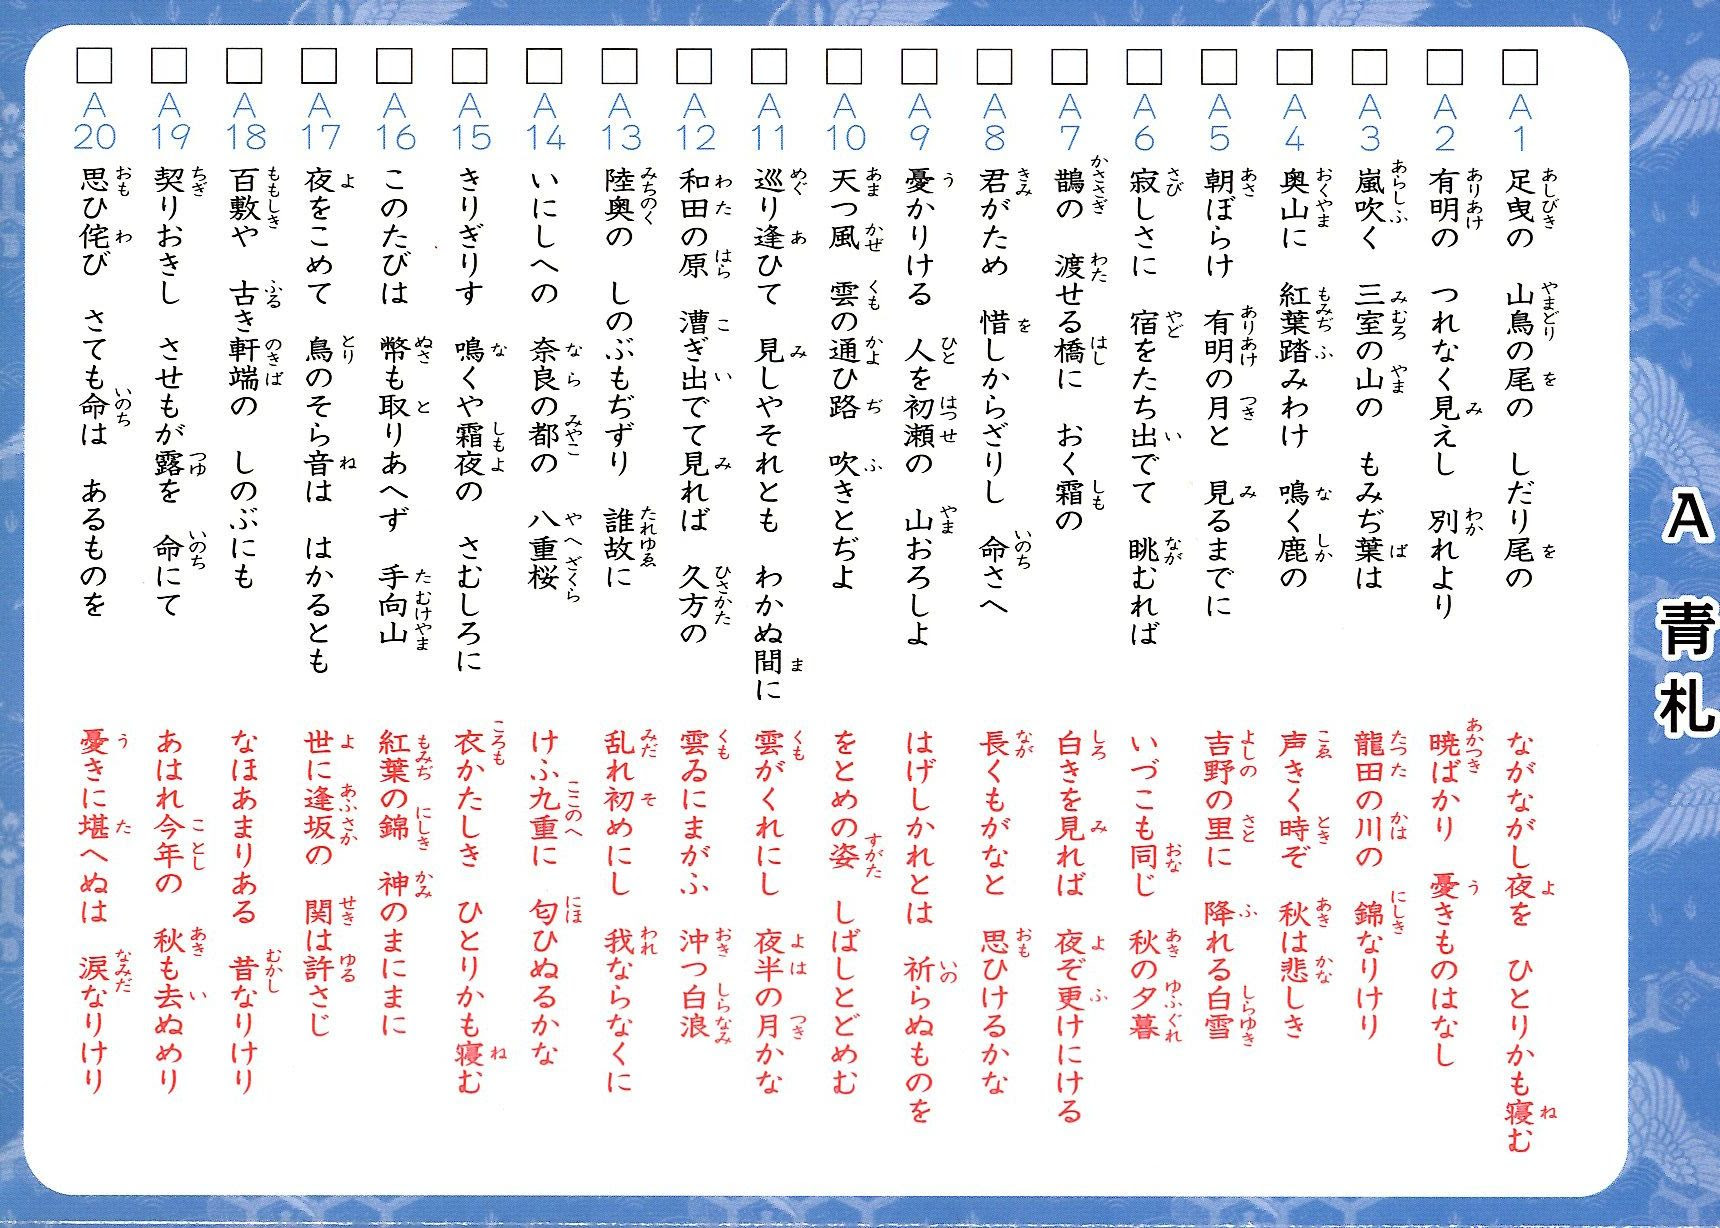 A 青札
A1 足曳の 山鳥の尾の しだり尾の ながながし夜を ひとりかも寝む
A2 有明の つれなく見えし 別れより 暁ばかり 憂きものはなし
A3 嵐吹く 三室の山の もみぢ葉は 龍田の川の 錦なりけり
A4 奥山に 紅葉踏みわけ 鳴く鹿の 声きく時ぞ 秋は悲しき
A5 朝ぼらけ 有明の月と 見るまでに 吉野の里に 降れる白雪
A6 寂しさに 宿をたち出でて 眺むれば いづこも同じ 秋の夕暮
A7 鵲の 渡せる橋に おく霜の 白きを見れば 夜ぞ更けにける
A8 君がため 惜しからざりし 命さへ 長くもがなと 思ひけるかな
A9 憂かりける 人を初瀬の 山おろしよ はげしかれとは 祈らぬものを
A10 天つ風 雲の通ひ路 吹きとぢよ をとめの姿 しばしとどめむ
A11 巡り逢ひて 見しやそれとも わかぬ間に 雲がくれにし 夜半の月かな
A12 和田の原 漕ぎ出でて見れば 久方の 雲ゐにまがふ 沖つ白浪
A13 陸奥の しのぶもぢずり 誰故に 乱れ初めにし 我ならなくに
A14 いにしへの 奈良の都の 八重桜 けふ九重に 匂ひぬるかな
A15 きりぎりす 鳴くや霜夜の さむしろに 衣かたしき ひとりかも寝む
A16 このたびは 幣も取りあへず 手向山 紅葉の錦 神のまにまに
A17 夜をこめて 鳥のそら音は はかるとも 世に逢坂の 関は許さじ
A18 百敷や 古き軒端の しのぶにも なほあまりある 昔なりけり
A19 契りおきし させもが露を 命にて あはれ今年の 秋も去ぬめり
A20 思ひ侘び さても命は あるものを 憂きに堪へぬは 涙なりけり